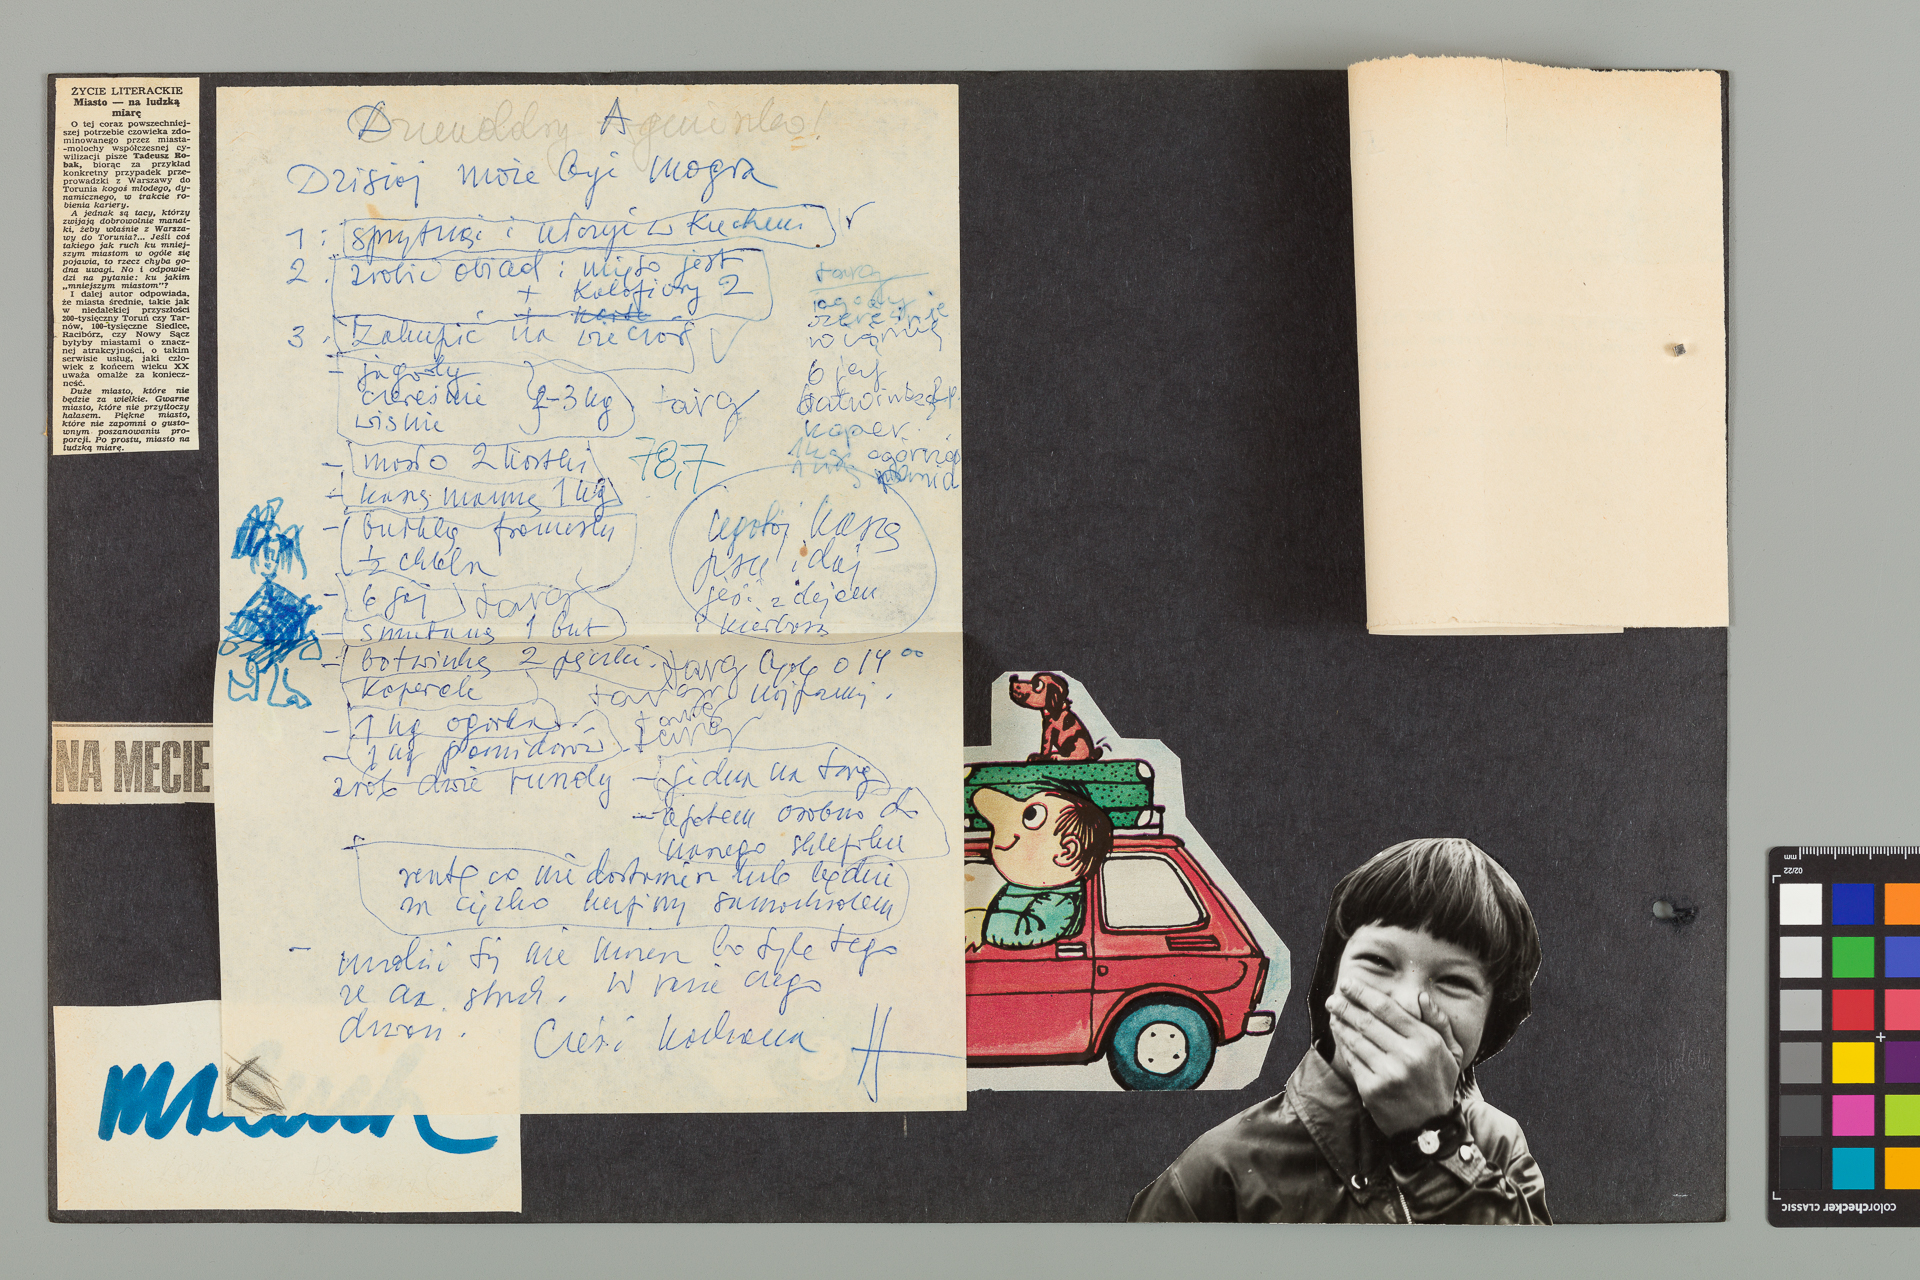 ŻYCIE LITERACKIE
Miasto — na ludzką
miarę
O tej coraz powszechniej-
szej potrzebie człowieka zdo-
minowanego przez miasta-
-molochy współczesnej cy-
wilizacji pisze Tadeusz Ro-
bak, biorąc za przykład
konkretny przypadek prze-
prowadzki z Warszawy do
Torunia kogoś młodego, dy-
namicznego, w trakcie ro-
bienia kariery.
A jednak są tacy, którzy
zwijają dobrowolnie manat-
ki, żeby właśnie z Warsza-
wy do Torunia?... Jeśli coś
takiego jak ruch ku mniej-
szym miastom w ogóle się
pojawia, to rzecz chyba go-
dna uwagi. No i odpowie-
dzi na pytanie: ku jakim
„mniejszym miastom"?
I dalej autor odpowiada,
że miasta średnie, takie jak
w niedalekiej przyszłości
200-tysięczny Toruń czy Tar-
nów, 100-tysięczne Siedlce,
Racibórz, czy Nowy Sącz
byłyby miastami o znacz-
nej atrakcyjności, o takim
serwisie usług, jaki czło-
wiek z końcem wieku XX
uważa omalże za koniecz-
ność.
Duże miasto, które nie
będzie za wielkie. Gwarne
miasto, które nie przytłoczy
hałasem. Piękne miasto,
które nie zapomni o gusto-
wnym poszanowaniu pro-
porcji. Po prostu, miasto na
ludzką miarę.
NA MECIE
Dzisiaj może być
1: sprzątnij i w kuchni
2. zrobić obiad: mięso jest
+ Kalafiory 2
3. Zakupić na wieczór
- jagody
czereśnie 2-3 kg targ
wiśnie
- masło 2 kostki 78,7
- kaszę mannę 1 kg
- butelkę
½ chleba
- 6 jaj targ
- śmietanę 1 but
- botwinkę 2 pęczki targ
koperek targ
- 1 kg ogórków targ
- 1 kg pomidorów targ
zrób dwie rundy - jedna na targ
- a potem osobno do
naszego sklepiku
- resztę co nie dostaniesz lub będzie
za ciężko kupimy samochodem
- się nie bo tyle tego
że aż strach. W razie czego
dzwoń. Cześć kochana H
targ
jagody
czereśnie
6 jaj
botwinkę
koper
1 kg ogórków
ugotuj kaszę
psu i daj
jeść z olejem
i kiełbasą
o 14 00
mm
02/22
colorchecker CLASSIC